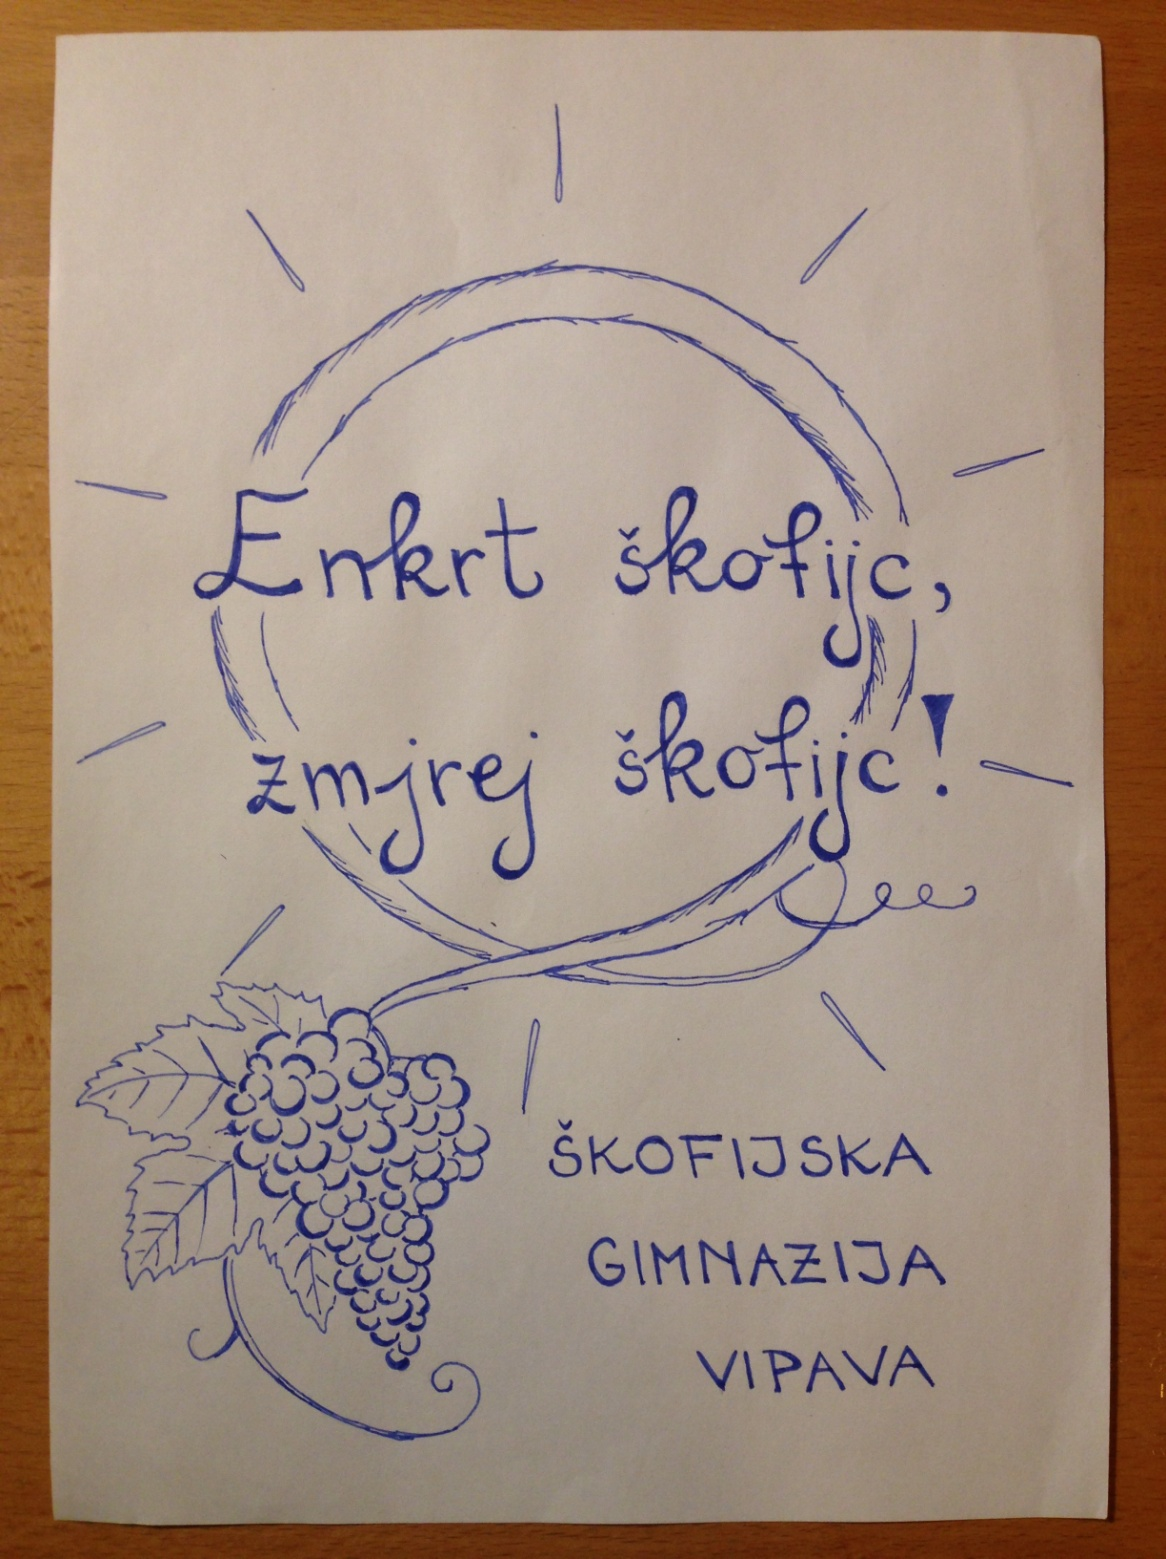 Enkrt škofijc,
zmjrej škofijc!
ŠKOFIJSKA
GIMNAZIJA
VIPAVA